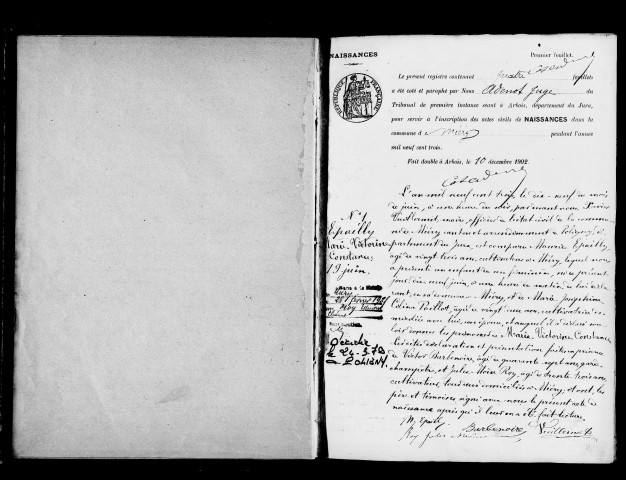 NAISSANCES
Premier feuillet.
Le présent registre contenant quatre feuillets
a été coté et paraphé par Nous Adenot Juge du
Tribunal de première instance séant à Arbois, département du Jura,
pour servir à l'inscription des actes civils de NAISSANCES dans la
commune d e Miéry pendant l'année
mil neuf cent trois.
Fait double à Arbois, le 10 décembre 1902.
RÉPUBLIQUE FRANÇAISE
N° 1
Epailly
Marie Victorine
Constance
19 juin.
L'an mil neuf cent trois, le dix-neuf du mois
de juin, à une heure du soir, par devant nous
Vuillermot, maire, officier de l'état civil de la commune
de Miéry canton et arrondissement de Poligny, dé
partement du Jura, est comparu Maurice Epailly
âgé de vingt trois ans, cultivateur à Miéry, lequel nous
a présenté un enfant du sexe féminin, né ce présent
jour dix-neuf juin, à une heure du matin, de lui décla
rant, en sa demeure à Miéry, et de Marie Joséphine
Paillot, âgée de vingt ans, cultivatrice
son épouse, et auquel il a déclaré vou
loir donner les prénoms de Marie Victorine Constance,
Lesdites déclaration et présentation faites en présence
de Victor Barbenoire, âgé de quarante sept ans, garde
champêtre, et Jules Roy, âgé de trente trois ans,
cultivateur, tous deux domiciliés à Miéry, et ont, les
père et témoins signé avec nous le présent acte de
naissance après qu'il leur en a été fait lecture.
M. Epailly
Barbenoire
Vuillermot
Roy Jules
Décédée
le 24-3-78